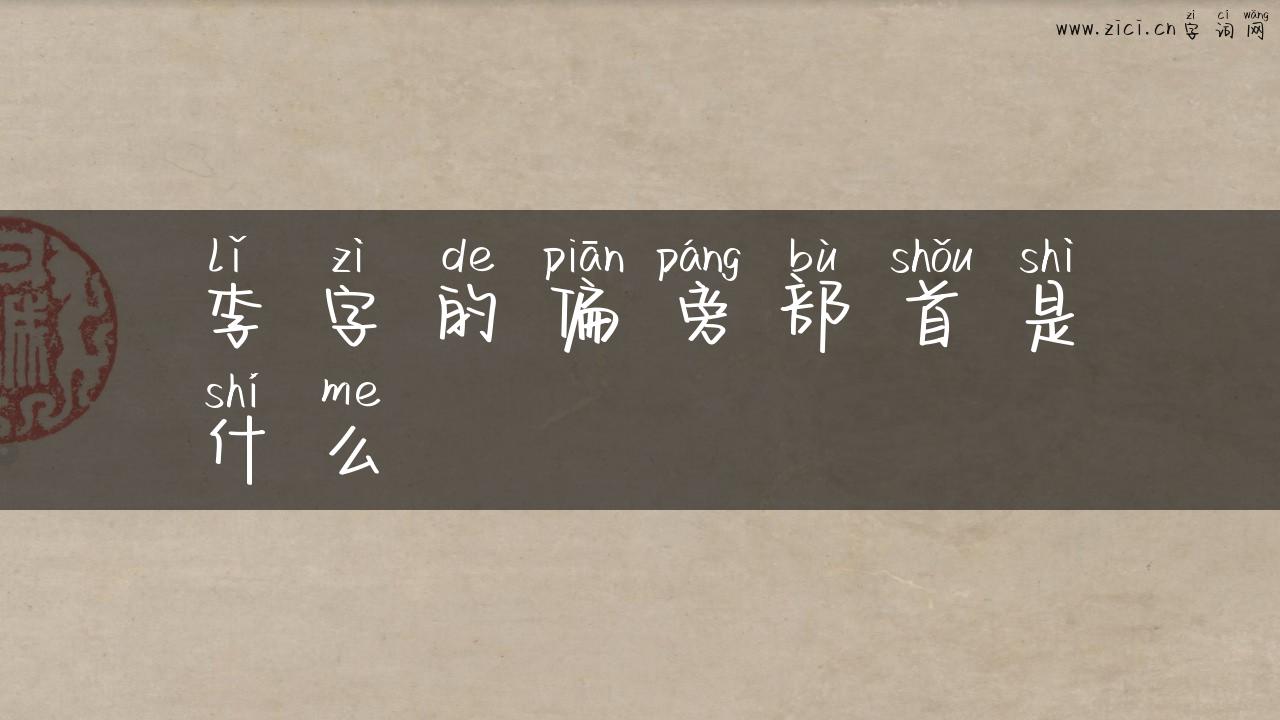 zì cí wǎng
www.zici.cn 字词网
lǐ zì de piān páng bù shǒu shì
李字的偏旁部首是
shí me
什么